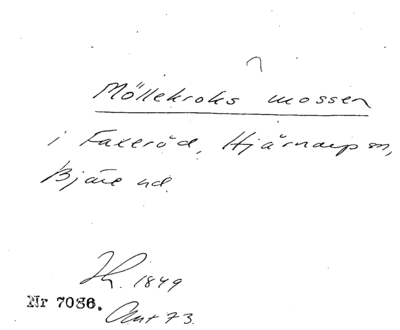 Möllekroks mossen
i Faxeröd, Hjärnarp sn,
Bjäre hd.
1849
Nr 7086.
73.